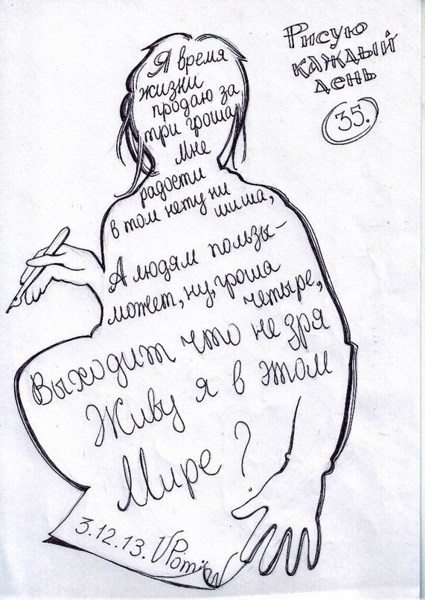 Рисую
каждый
день
35.
Я время
жизни
продаю за
три гроша,
Мне
радости
в том нету ни
шиша,
А людям пользы-
может, ну, гроша
четыре,
Выходит что не зря
Живу я в этом
Мире?
3.12.13.